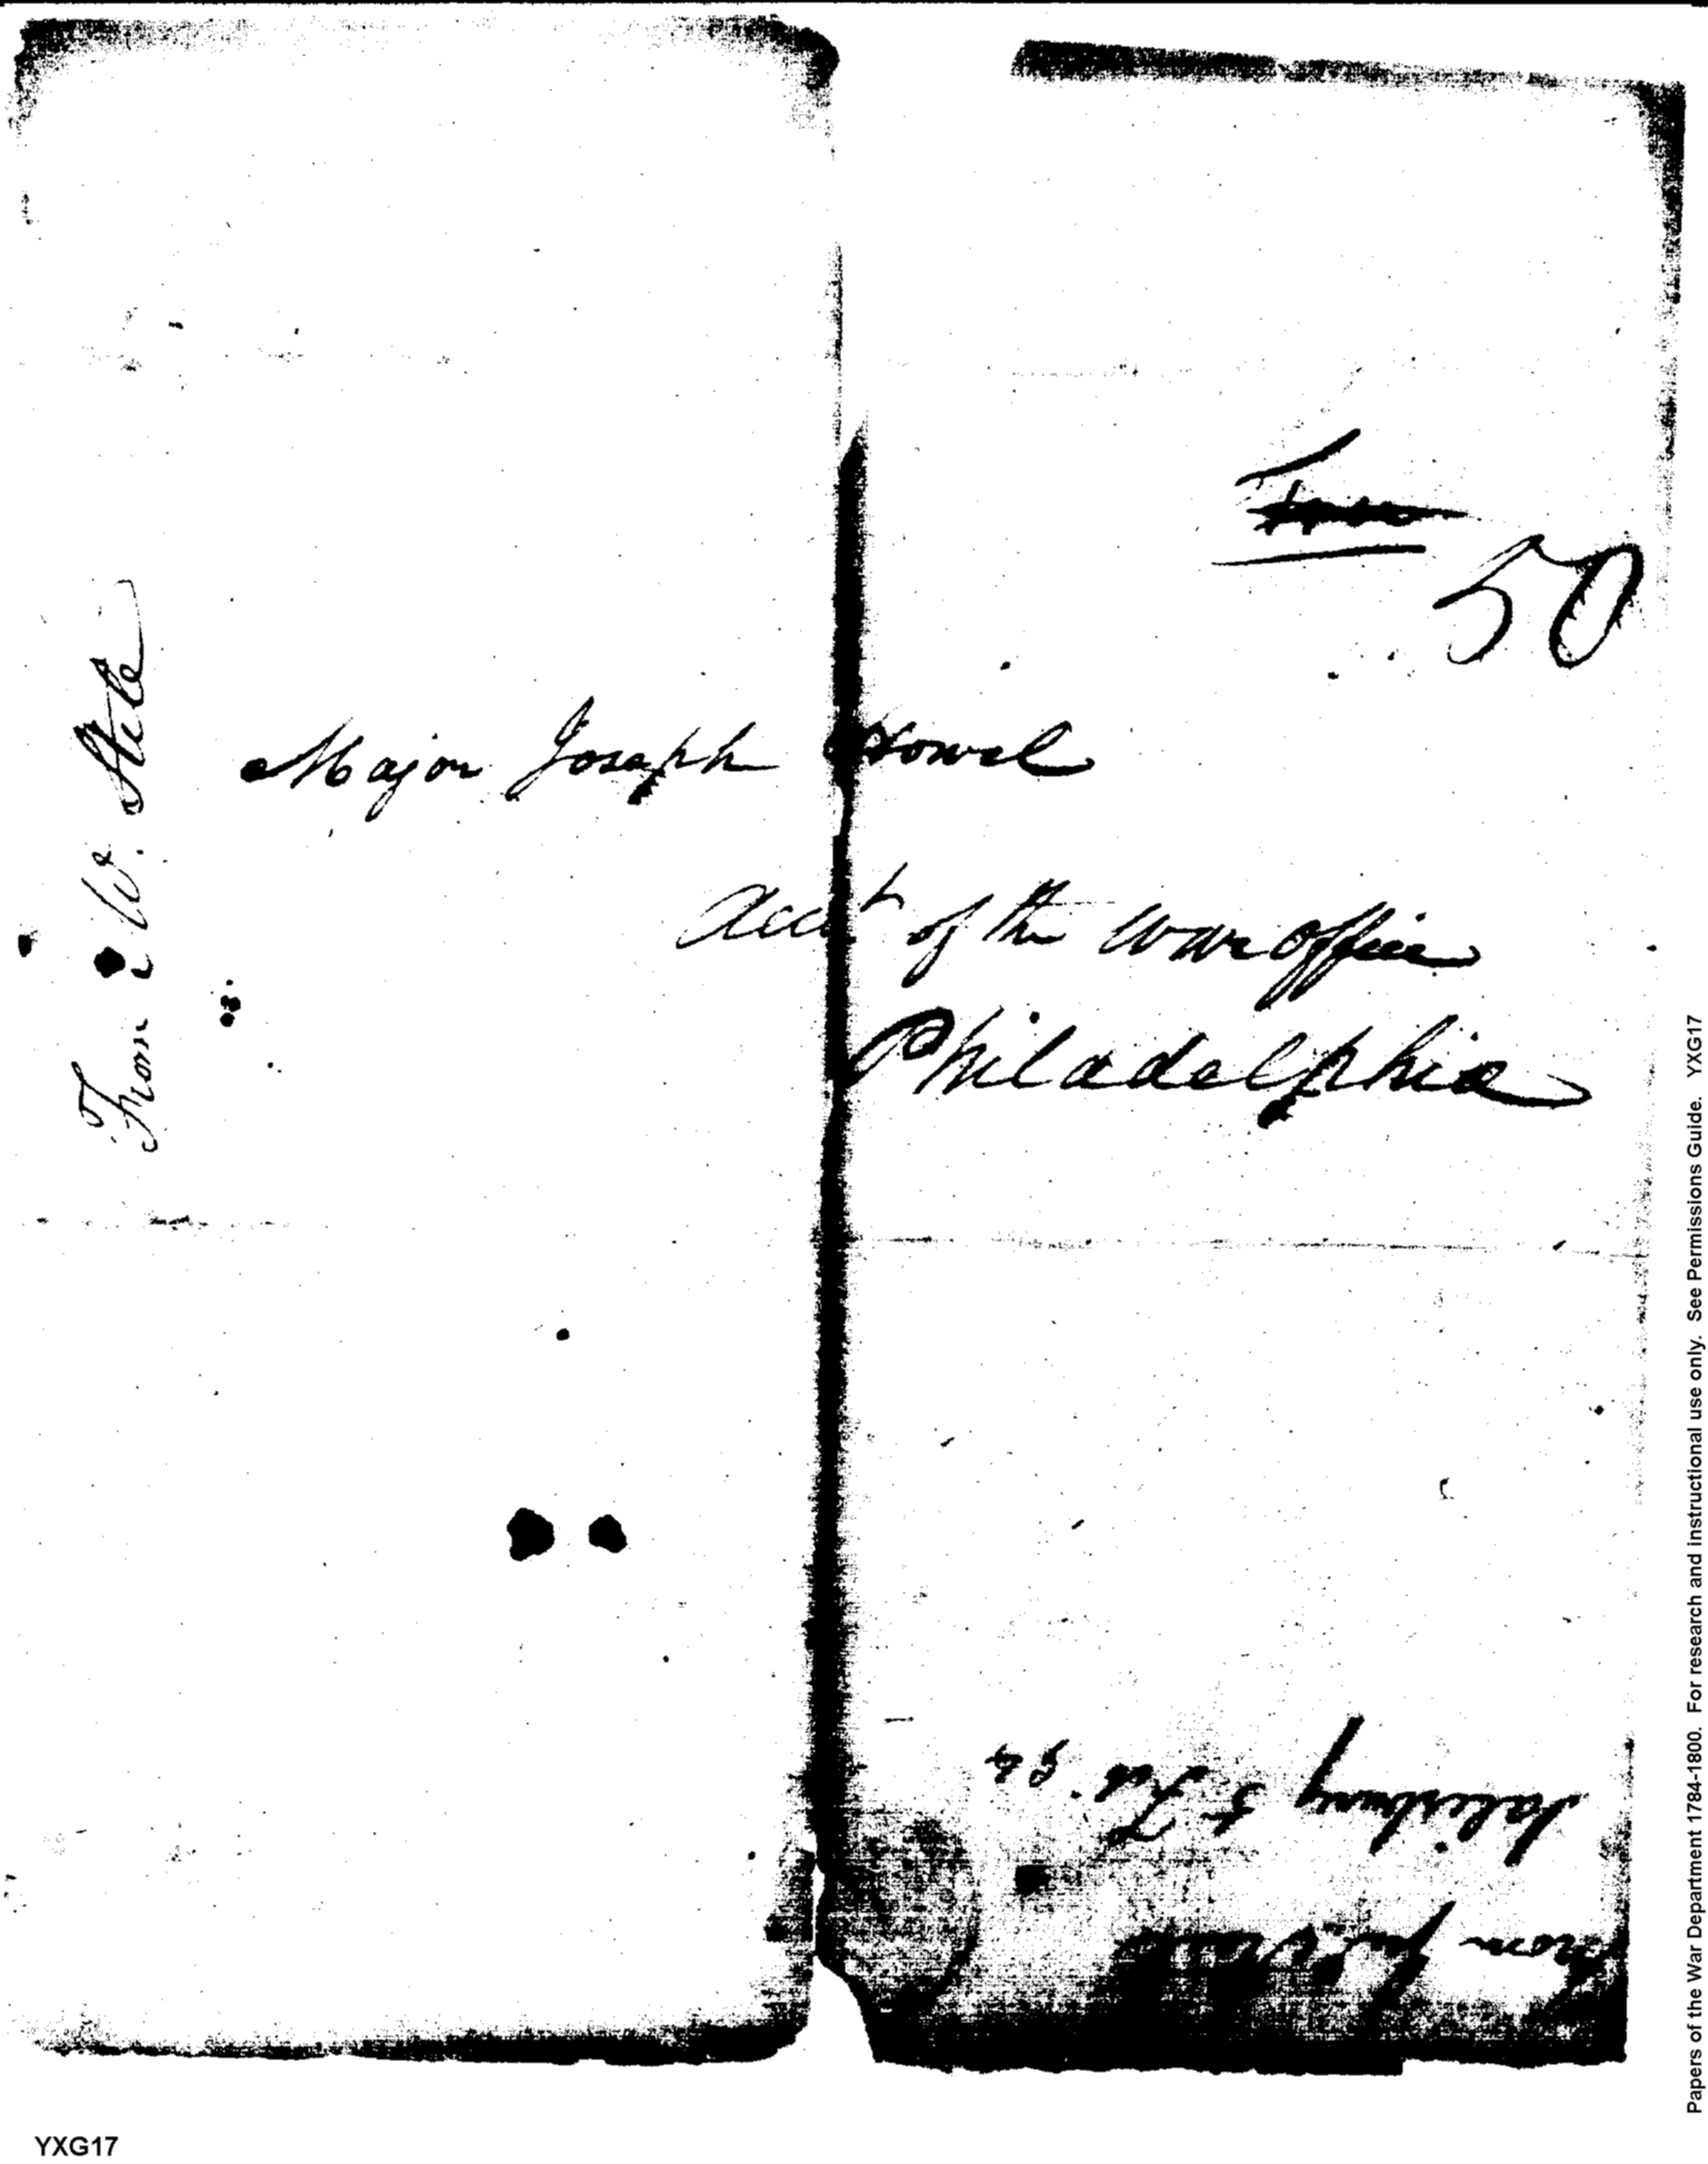 Free
50
Major Joseph Howel
Acct of the war office
Philadelphia
From W. Stele
Salisbury 5 Feb. 94
From
Papers of the War Department 1784-1800. For research and instructional use only. See Permissions Guide. YXG17
YXG17